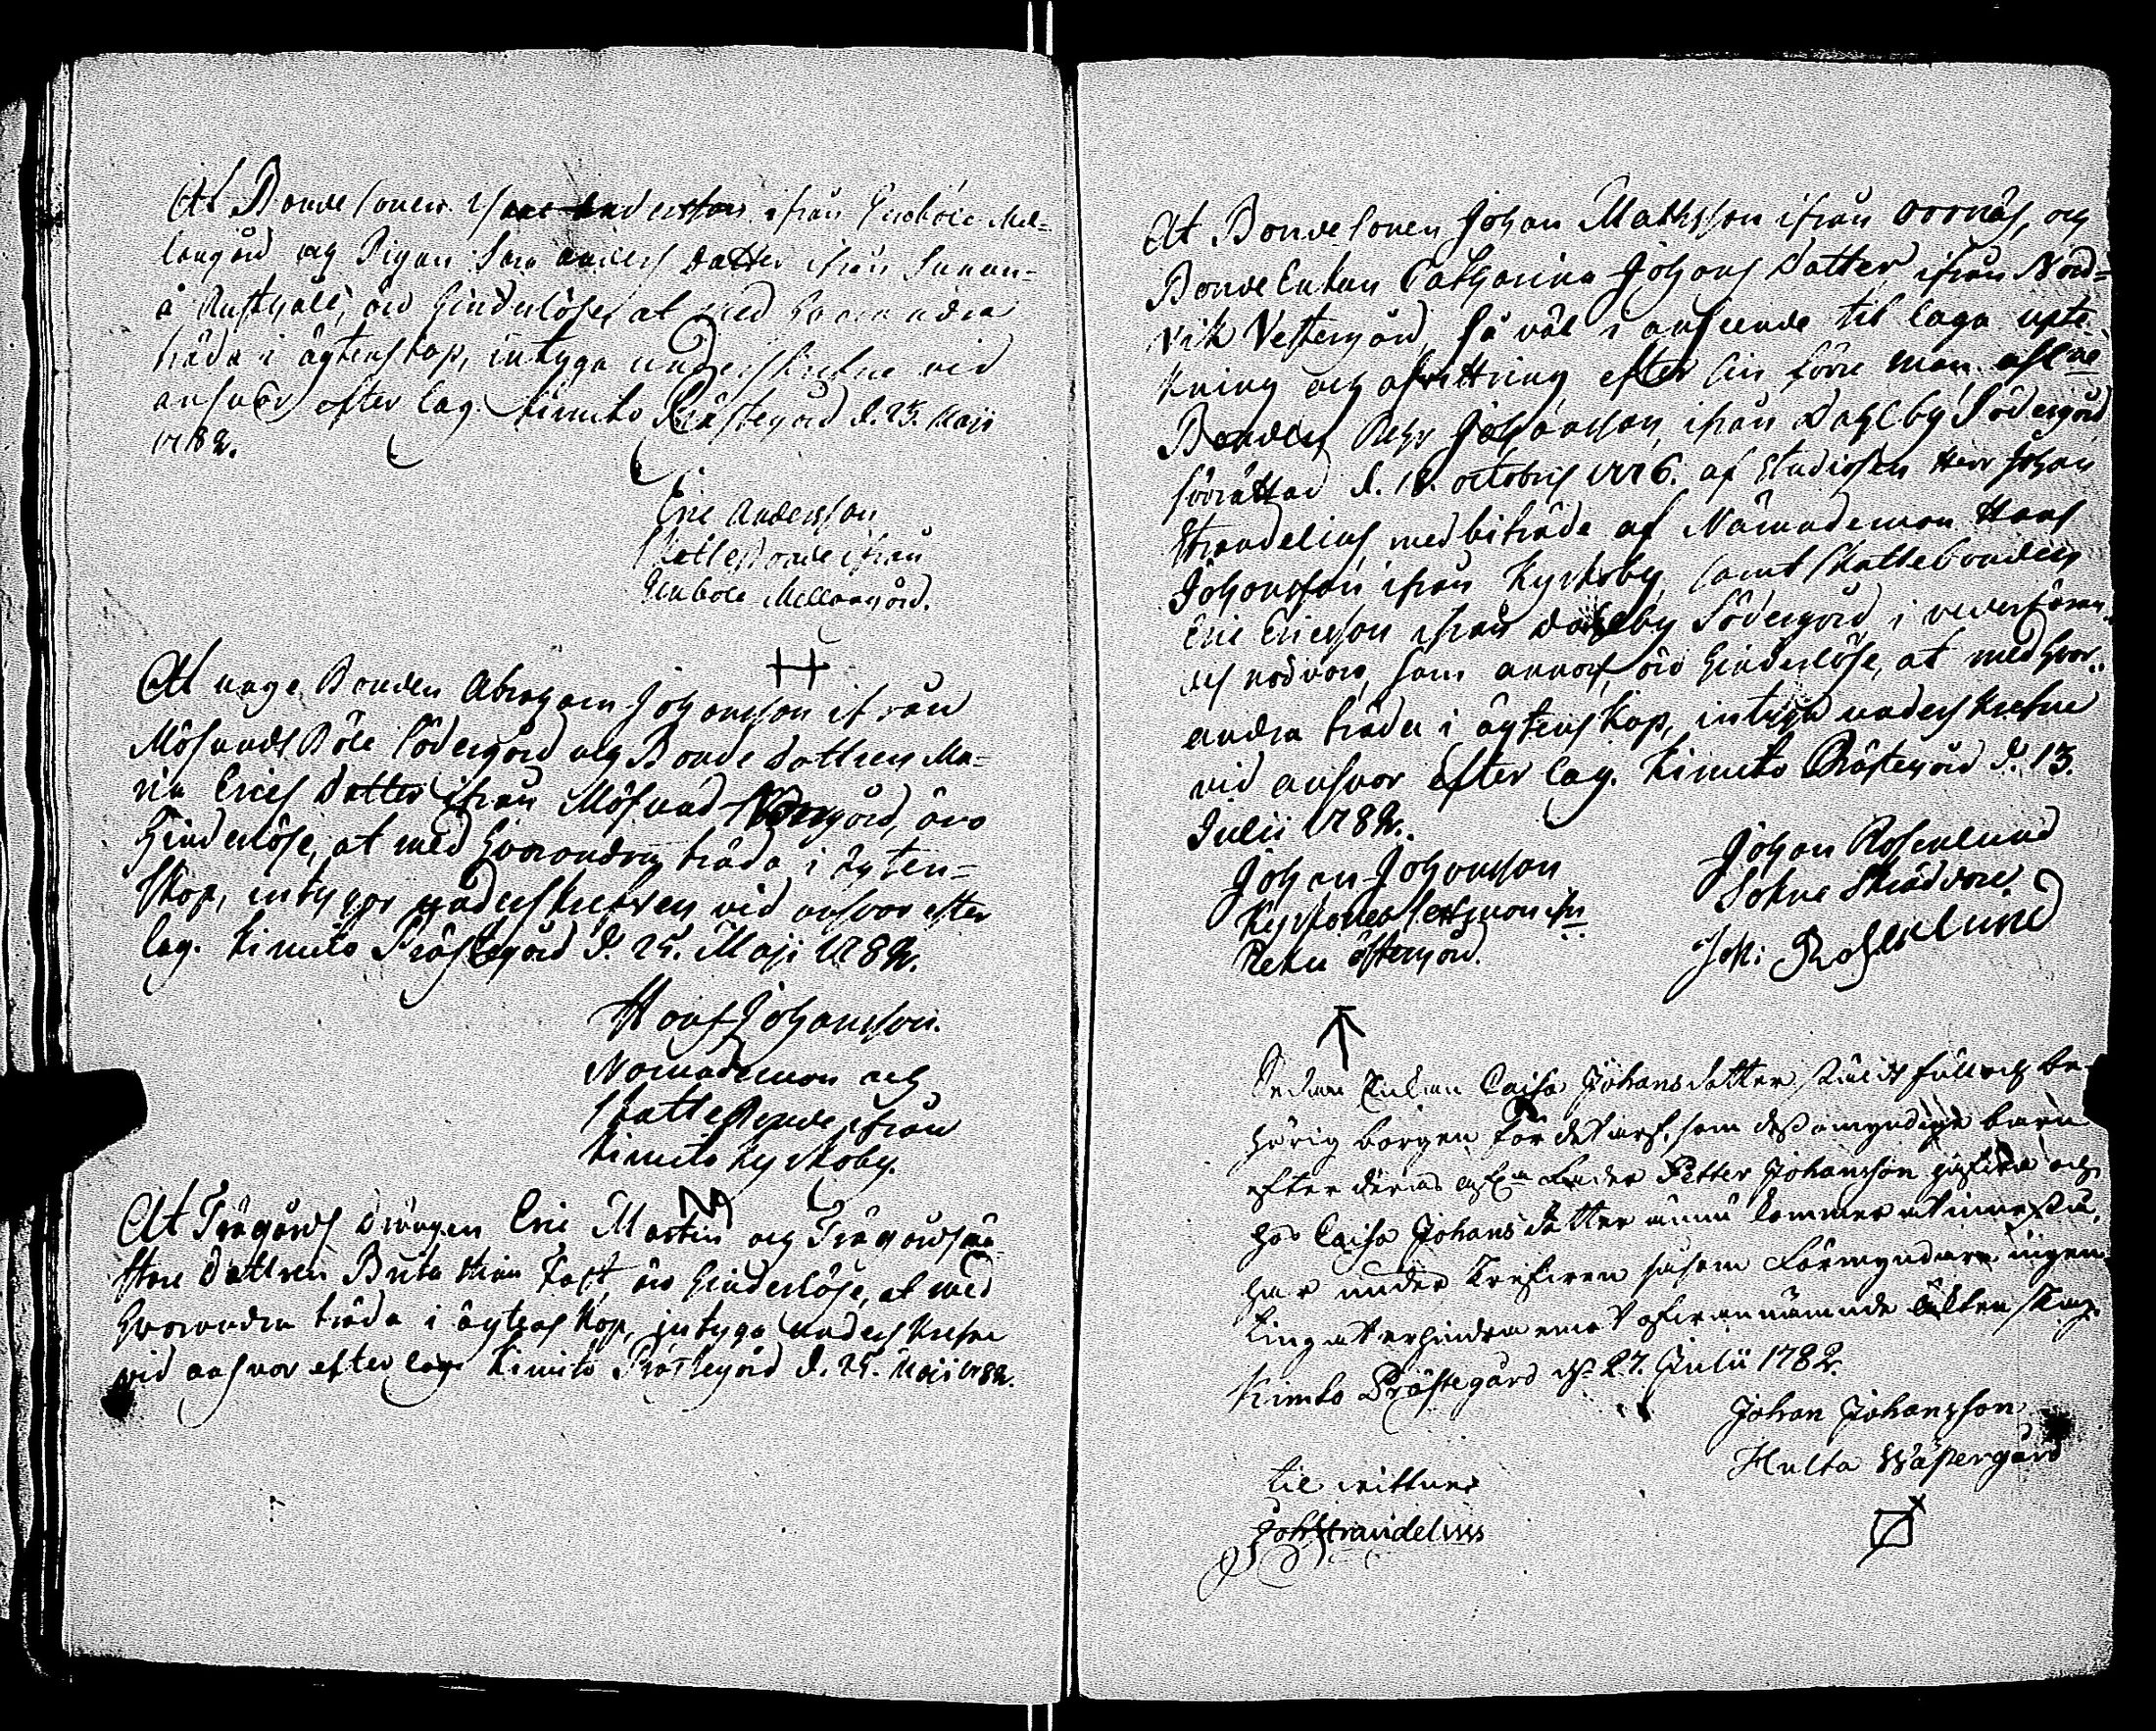 At Bondesonen Isaac Andersson ifrån Genböle Mel=
langård och Pigan Sara Anders Datter ifrån
å Rusthåll, äro hinderlöse at med hvarandra
träda i ägtenskap, intyga underskrefne vid
answar efter lag. Kimito Prästegård d. 25. Maji
1782.
Eric Andersson
Skattebonde ifrån
Genböle Mellangård.
At unge Bonden Abraham Johansson ifrån
Mösundsböle Södergård och Bonde Dottren Ma=
ria Erics Datter ifrån Mösund Norrgård, äro
hinderlöse, at med hvarandra träda i ägten=
skap, intygar underskrefven vid ansvar efter
lag. Kimito Prästegård d. 25. Maji 1782.
Hans Johansson.
Nämndeman och
Skattebonde ifrån
Kimito Kyrkoby.
At Trägårds Drängen Eric Martin och Trägårdsmä=
stare Dottren Brita Stina äro hinderlöse, at med
hvarandra träda i ägtenskap, intyga underskrefne
vid ansvar efter lag. Kimito Prästegård d. 25. Maji 1782.
At Bondesonen Johan Mathsson ifrån och
Bonde Enkan Catharina Johans Datter ifrån Nord=
vik Vestergård, så väl i anseende til laga upte=
kning och afvittring efter sin förre man afledne
Bonden Pehr Johansson, ifrån Dahlby Södergård
förrättad d. 18. octobris 1776. af Studiosen Herr Johan
Strandelius, med biträde af Nämndeman Hans
Johansson ifrån Kyrkoby, samt Skattebonden
Eric Ericsson ifrån Dahlby Södergård i vederböran=
des närvaro, som annors, äro hinderlöse, at med hvar=
andra träda i ägtenskap, intyga underskrefne
vid ansvar efter lag. Kimito Prästegård d. 13.
Julii 1782.
Johan Johansson
Kyrkones Sexman ifrn
Reku Östergård.
Johan Rosenlund
Sokne Skräddare.
Joh: Rosenlund
Sedan Enkan Caisa Johansdotter stält full och be=
hörig borgen för det arf, som dess omyndige barn
efter deras afln fader Petter Johansson och
hos Caisa Johansdotter ännu kommer at innestå,
har under såsom Förmyndare ingen
ting at erhindra emot ofvannämnde Enkas
Kimito Prästegård d. 27. Julii 1782.
Johan Johansson
Hulta Wästergård
til wittne
Joh Strandelius